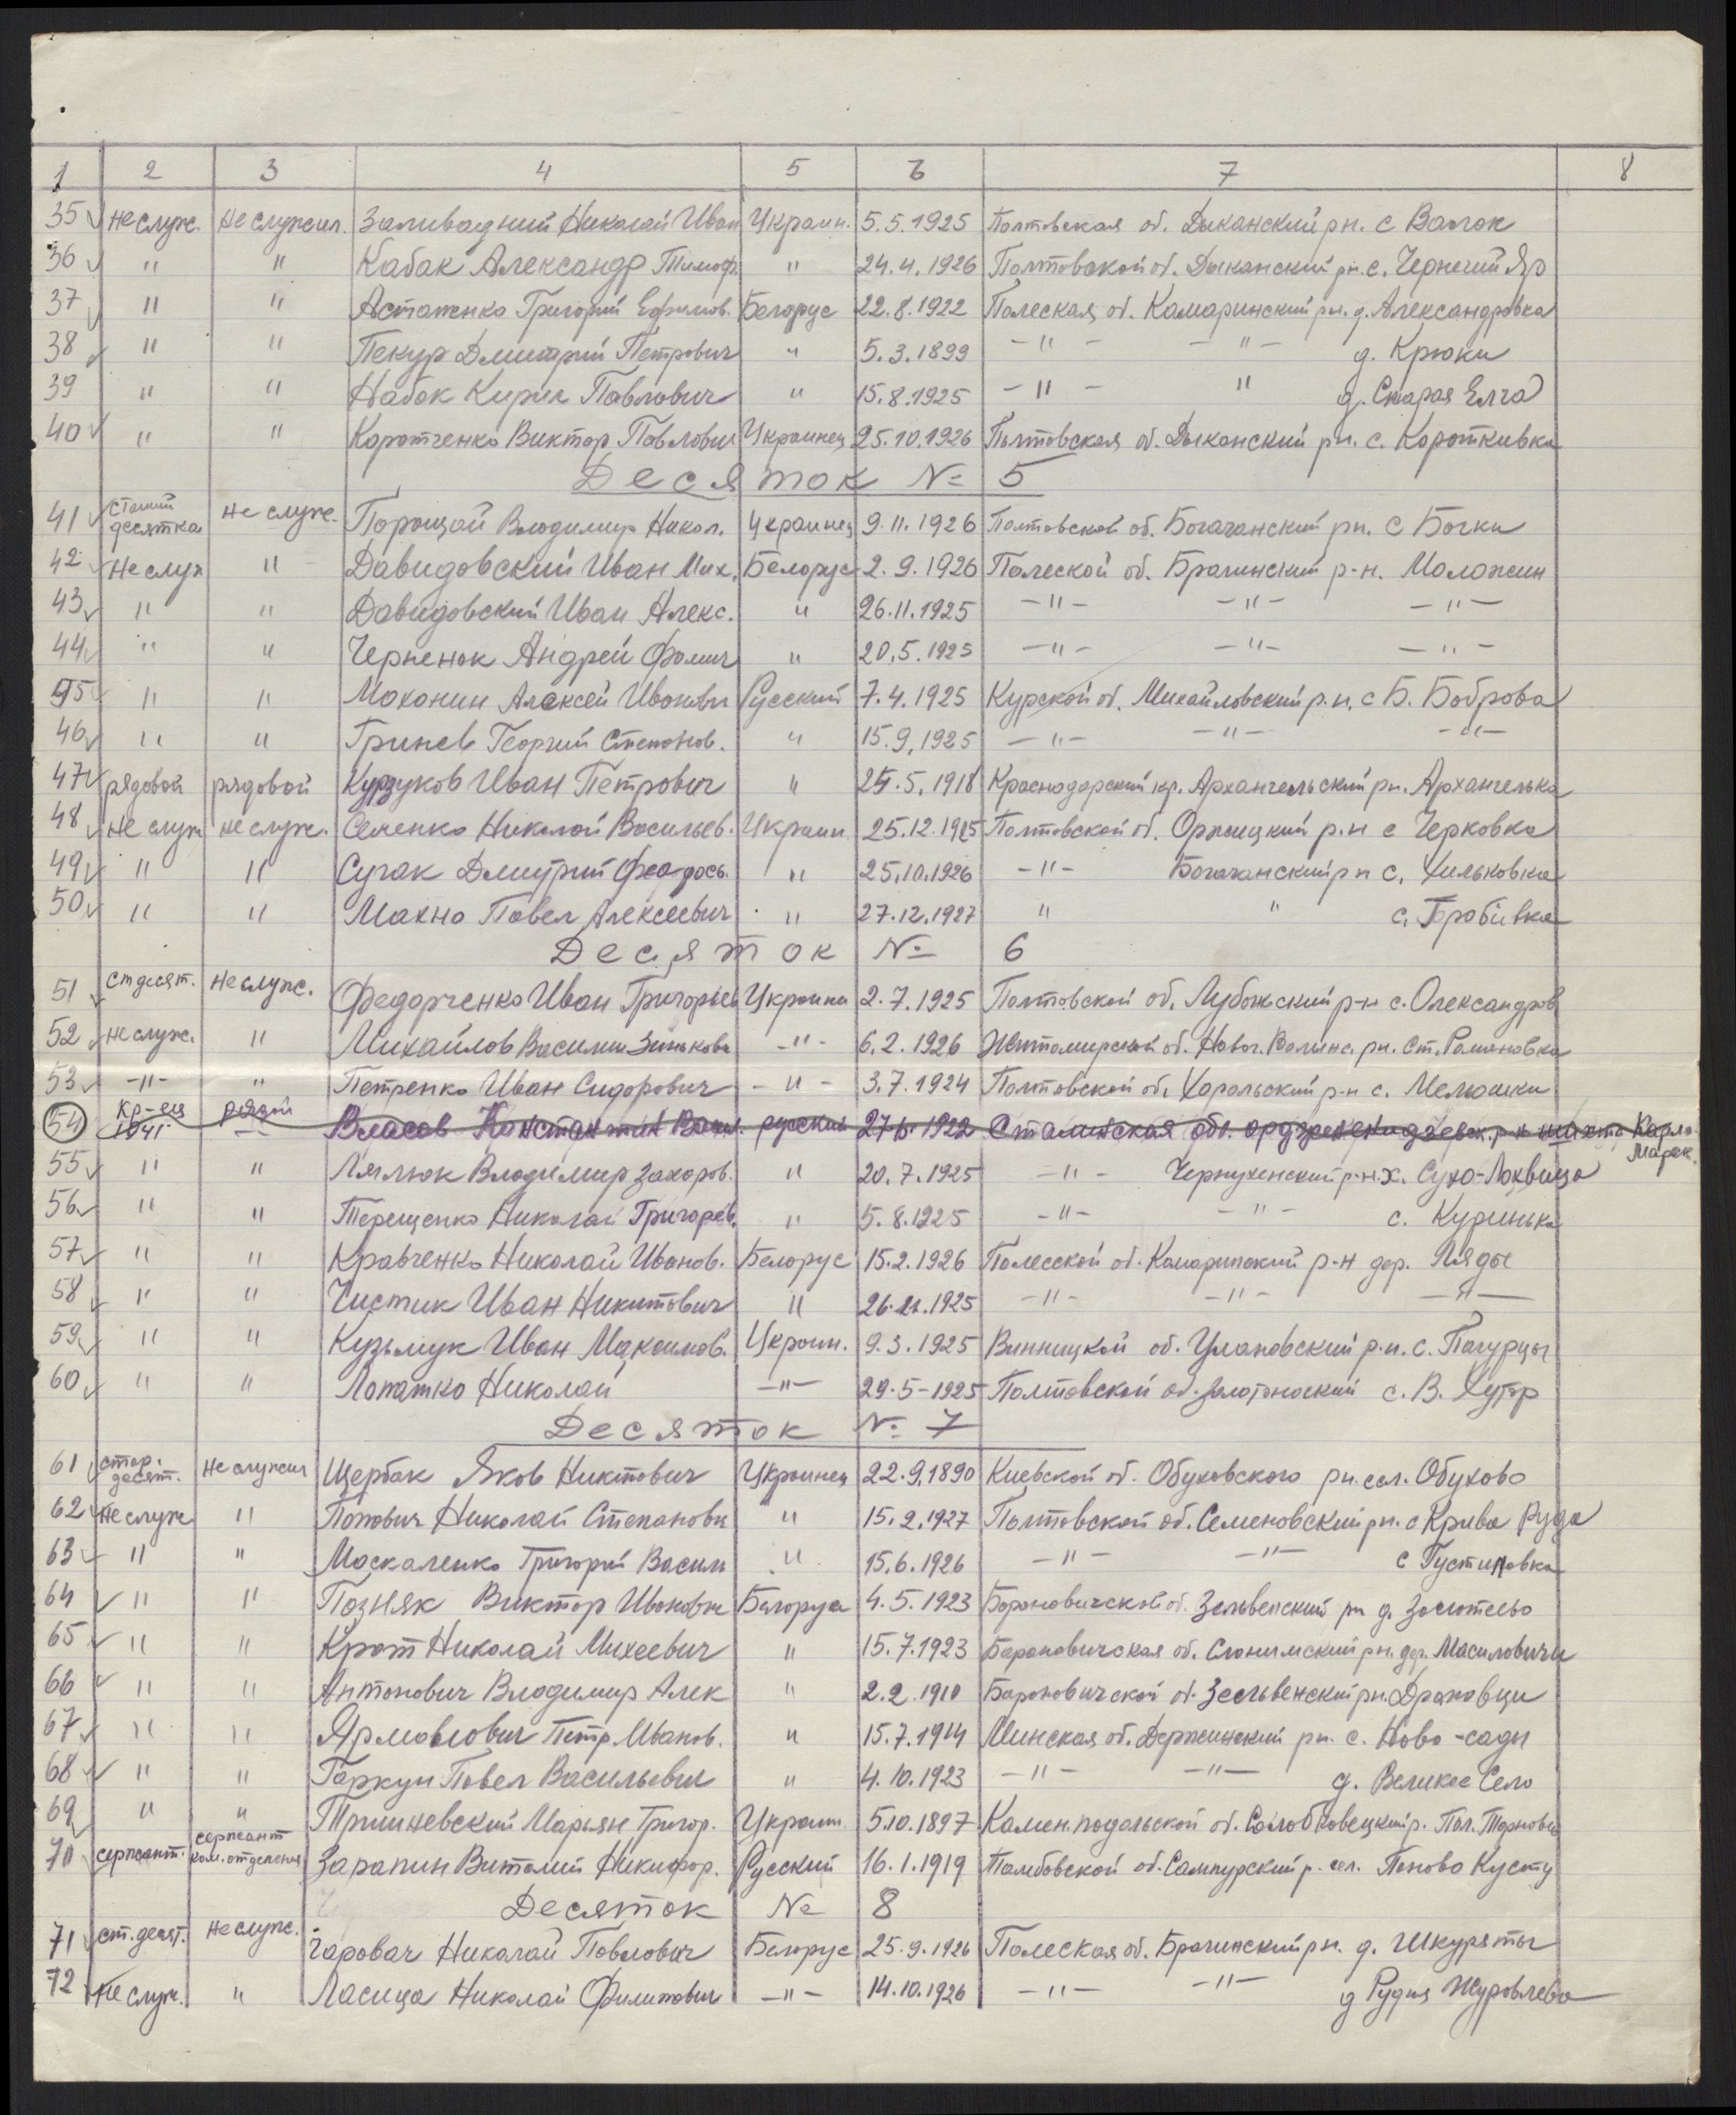 1 2 3 4 5 6 7 8
35 не служ. не служил. Заливадний Николай Иван Украин. 5.5.1925 Полтовская об. Дыканский рн. с Валок
36 " " Кабак Александр Тимоф. " 24.4.1926 Полтовской об. Дыканский рн. с. Чернечий Яр
37 " " Асташенко Григорий Ефимов. Белорус 22.8.1922 Полеская об. Камаринский рн. д. Александровка
38 " " Пекур Дмитрий Петрович " 5.3.1899 -"- -"- д. Крюки
39 " " Набок Кирил Павлович " 15.8.1925 -"- " д. Старая Елча
40 " " Коротченко Виктор Павлович Украинец 25.10.1926 Полтовская об. Дыканский рн. с. Короткивка
Десяток № 5
41 Старший десятка не служ. Порощай Володимир Никол. Украинец 9.11.1926 Полтовской об. Богачанский рн. с Бочки
42 не служ " Давидовский Иван Мих. Белорус 2.9.1926 Полеской об. Брагинский р-н. Маложин
43 " " Давидовский Иван Алекс. " 26.11.1925 -"- -"- -"-
44 " " Черненок Андрей Фомич " 20.5.1925 -"- -"- -"-
45 " " Маханин Алексей Иванович Русский 7.4.1925 Курской об. Михайловский р.н. с Б. Боброва
46 " " Гринев Георгий Степонов. " 15.9.1925 -"- -"- -"-
47 рядовой рядовой Курзуков Иван Петрович " 25.5.1918 Краснодарский кр. Архангельский рн. Архангелька
48 не служ не служ. Семенко Николай Васильев. Украин. 25.12.1925 Полтовской об. Оржицкий р.н с Черковка
49 " " Сучак Дмитрий Феодось. " 25.10.1926 -"- Богачанский рн с. Хильковка
50 " " Махно Повел Алексеевич " 27.12.1927 " " с. Бробівка
Десяток № 6
51 ст десят. не служ. Федорченко Иван Григорьев Украини 2.7.1925 Полтовской об. Лубонский р-н с. Олександров
52 не служ. " Михайлов Василий Зинькова -"- 6.2.1926 Житомирской об. Новог. Волынс. рн. Ст. Романовка
53 -"- " Петренко Иван Сидорович -"- 3.7.1924 Полтовской об. Хорольский р-н с. Мелюшки
54 кр-ец 1941 рядой Власов Константин Васил. русский 27.6.1922 Сталинская обл. орджоненидзевск. р-н шихта Карло-Маркс.
55 " " Лялюк Владимир Захоров. " 20.7.1925 -"- Чернухенский р-н х. Сухо-Лохвица
56 " " Терещенко Николай Григорев. " 5.8.1925 -"- -"- с. Куринька
57 " " Кравченко Николай Иванов. Белорус 15.2.1926 Полесской об. Комаринский р-н дер. Ляды
58 " " Чистик Иван Никитович " 26.11.1925 -"- -"- -"-
59 " " Кузьмук Иван Максимов. Украин. 9.3.1925 Винницкой об. Улановский р.н. с. Пагурцы
60 " " Лопатко Николай -"- 29-5-1925 Полтовской об. Золотоноский с. В. Хутор
Десяток № 7
61 стар. десят. не служил Щербак Яков Никтович Украинец 22.9.1890 Киевской об. Обуховского рн. сел. Обухово
62 не служ " Попович Николай Степанови " 15.2.1927 Полтовской об. Семеновский рн. с Крива Руда
63 " " Маскаленко Григорий Васили " 15.6.1926 -"- -"- с Густиновка
64 " " Позняк Виктор Иванови Белоруа 4.5.1923 Бороновичской об. Зельвенский рн д.
65 " " Крот Николай Михеевич " 15.7.1923 Барановичская об. Слонимский рн. дер. Масиловичи
66 " " Антонович Владимир Алек " 2.2.1910 Бороновичской об. Зесльвенский рн. Драковци
67 " " Ярмолович Петр Иванов. " 15.7.1914 Минская об. Держинский рн. с. Ново-сады
68 " " Гаркун Повел Васильевич " 4.10.1923 -"- -"- д. Великое Село
69 " " Тришневский Марьян Григор. Украин. 5.10.1897 Камен. подольской об. Солобковецкий р. Пол. Терновка
70 сержант. сержант ком. отделения Зарапин Виталий Никифор. Русский 16.1.1919 Тамбовской об. Сампурский р. сел. Поново Кусту
Десяток № 8
71 ст. десят. не служ. Чаровач Николай Повлович Белорус 25.9.1926 Полеская об. Брагинский рн. д. Шкураты
72 не служ. " Ласица Николай Филипович -"- 14.10.1926 -"- -"- д Рудня Журовлева